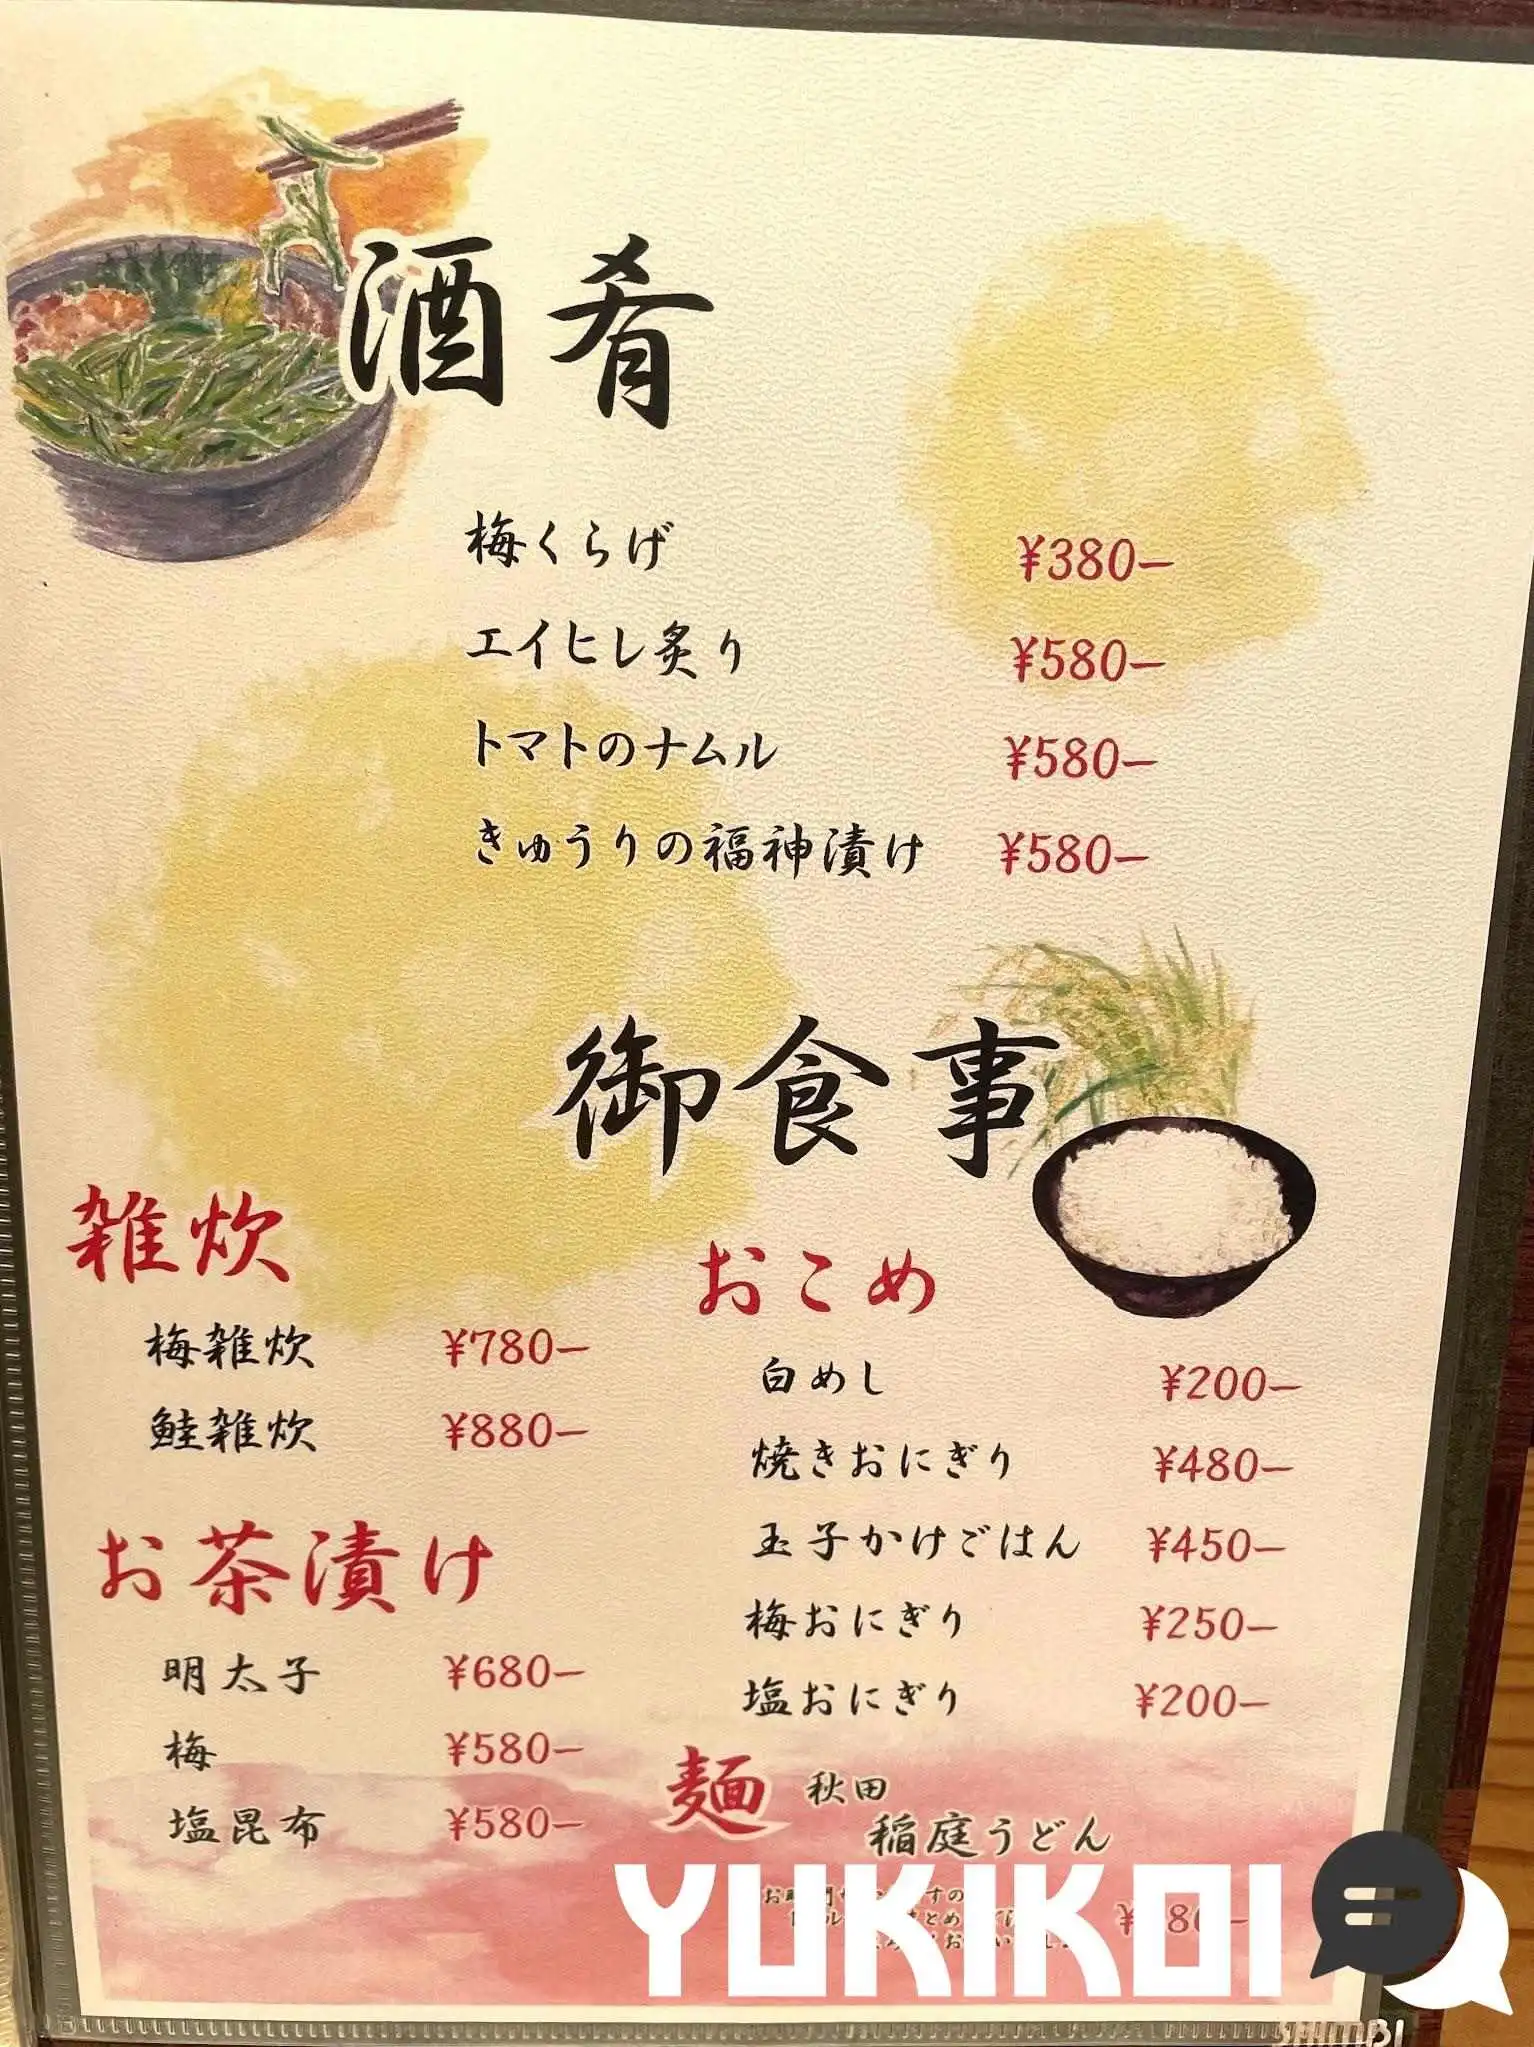 酒肴
梅くらげ ¥380−
エイヒレ炙り ¥580−
トマトのナムル ¥580−
きゅうりの福神漬け ¥580−
御食事
雑炊
梅雑炊 ¥780−
鮭雑炊 ¥880−
お茶漬け
明太子 ¥680−
梅 ¥580−
塩昆布 ¥580−
おこめ
白めし ¥200−
焼きおにぎり ¥480−
玉子かけごはん ¥450−
梅おにぎり ¥250−
塩おにぎり ¥200−
麺 秋田
稲庭うどん
YUKIKOI